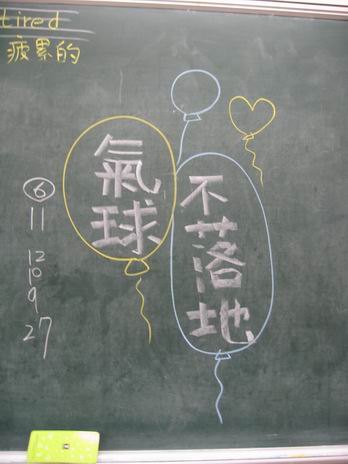 tired
疲累的
氣球
不落地
6
11
12
10
9
27